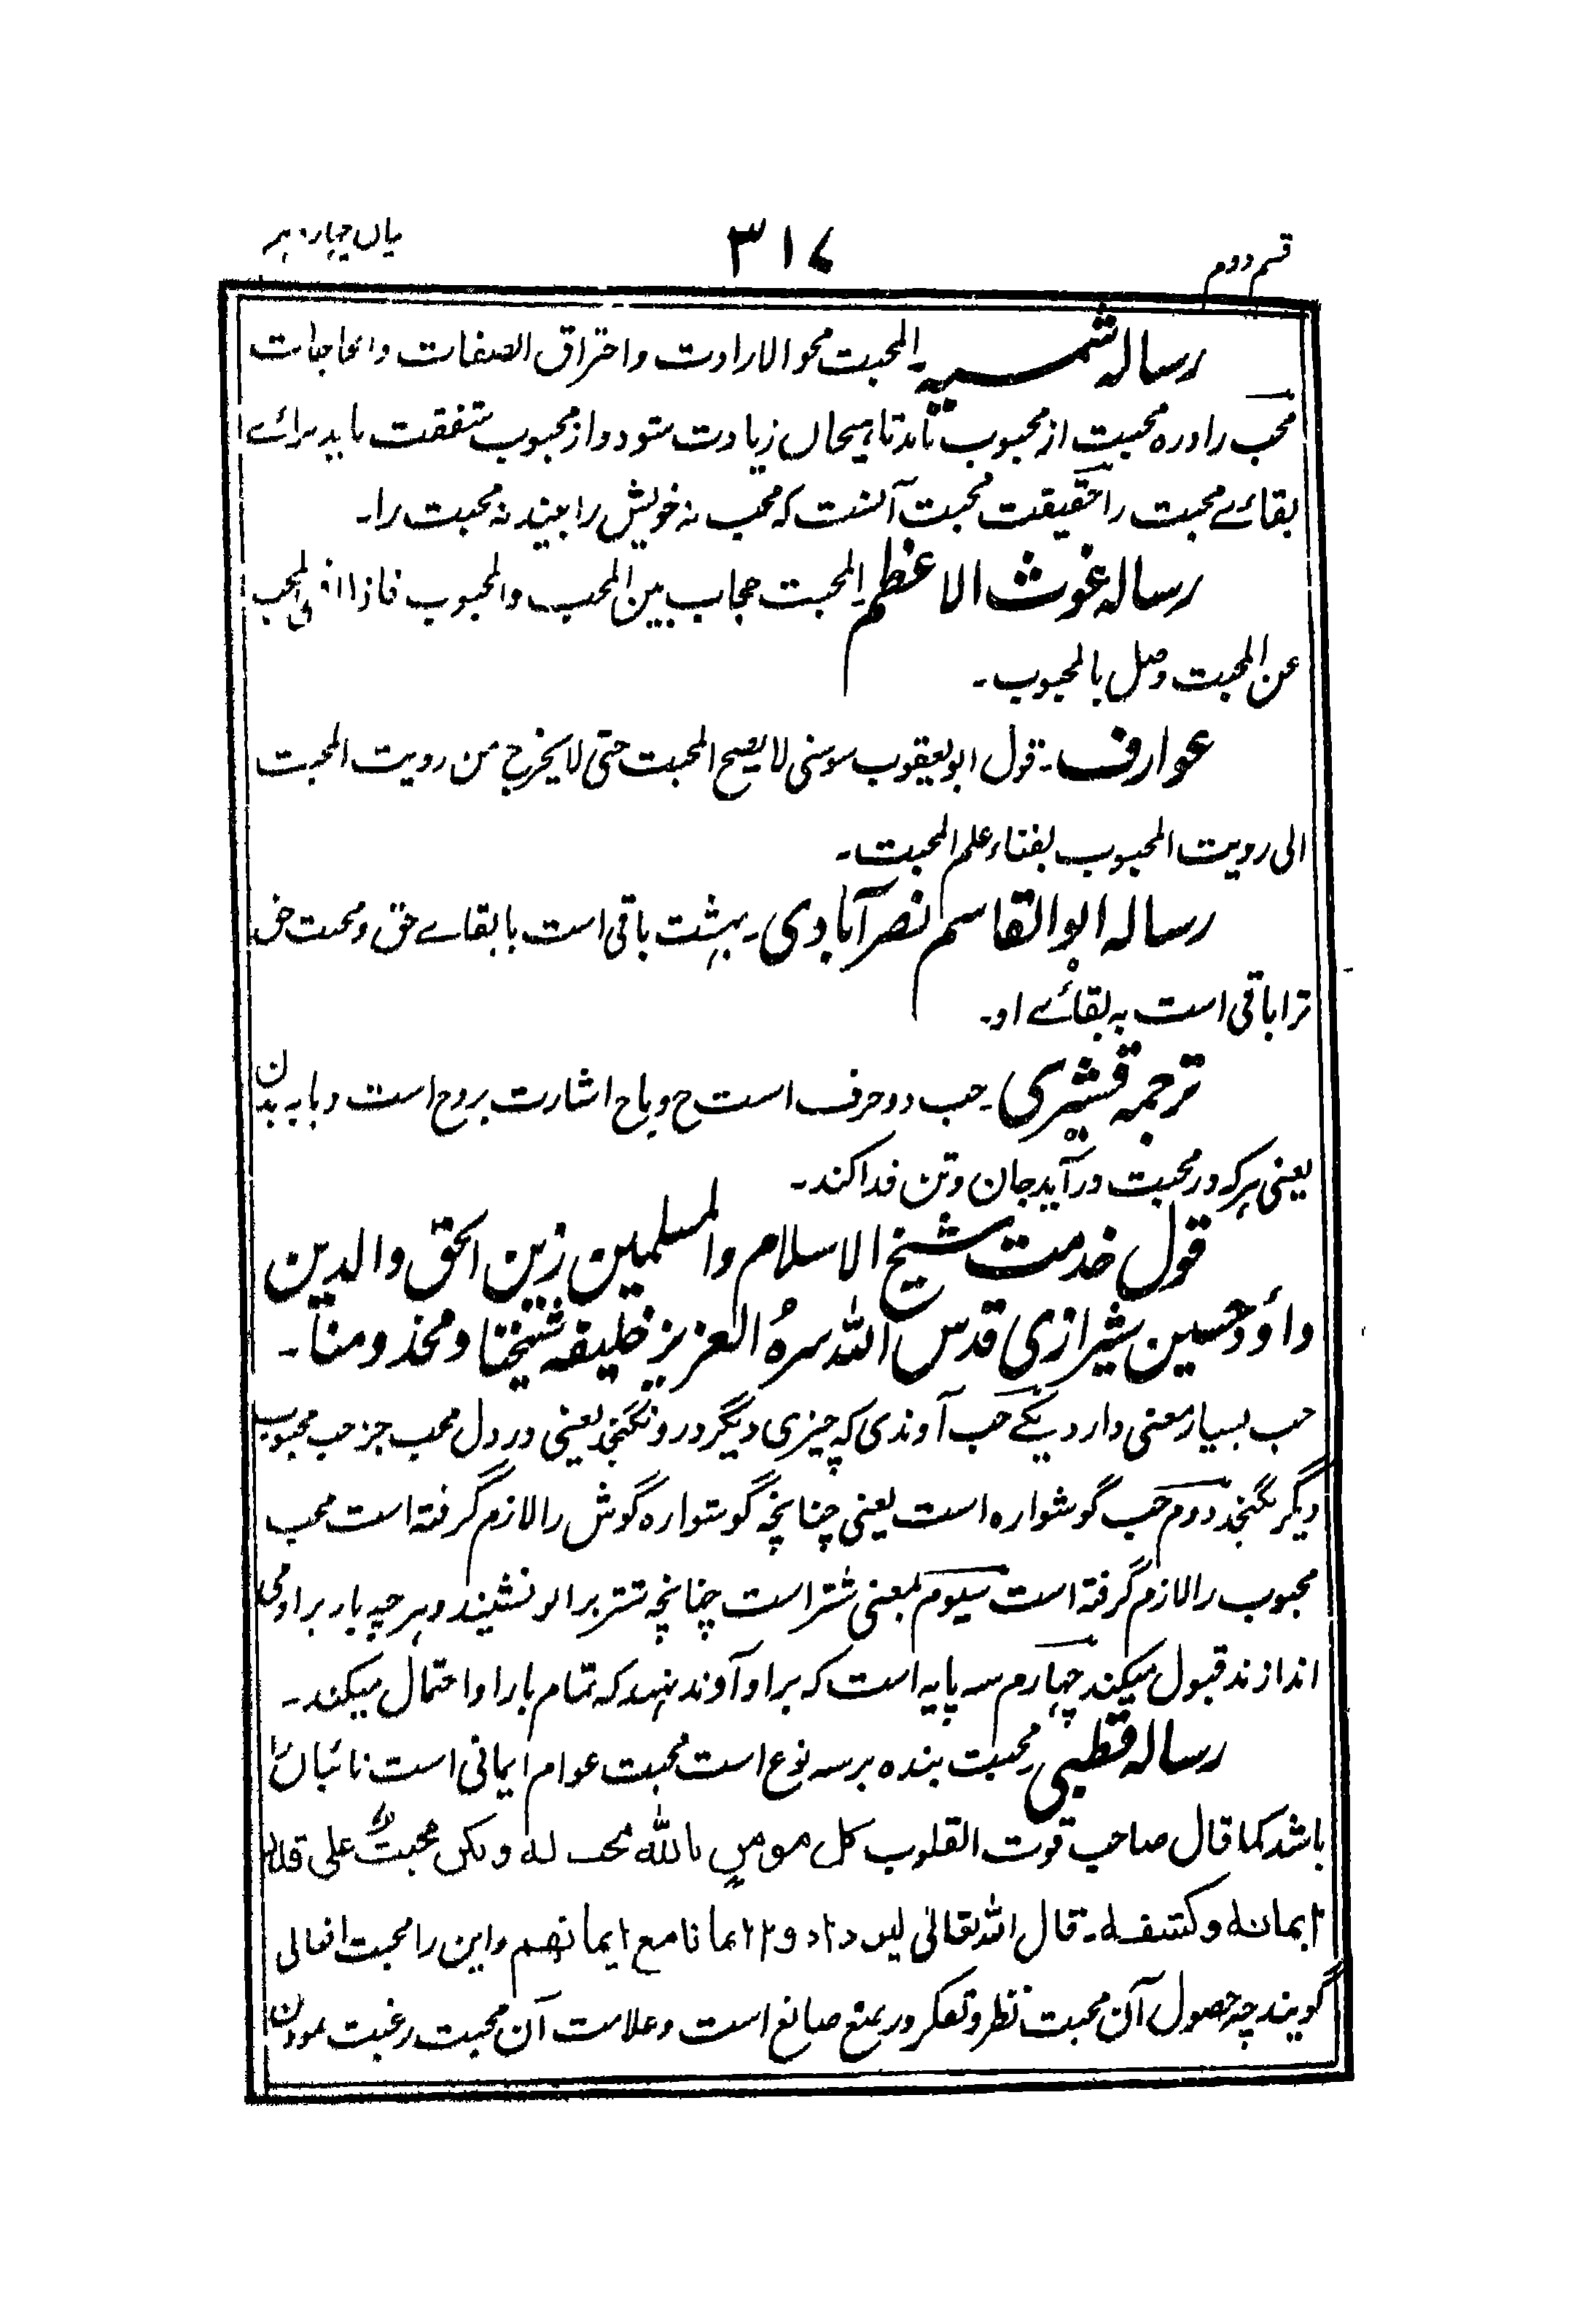 قسم دوم ۳۱۷ بیان چهاردهم
رسالہ شمسیہ۔ المحبت محو الارادت واحتراق الصفات والحاجات
محب را در ره محبت از محبوب باید تا ہیجان زیادت شود و از محبوب شفقت باید برائے
بقائے محبت را حقیقت محبت آنست کہ محب نہ خویش را بیند نہ محبت را۔
رسالہ غوث الاعظم۔ المحبت حجاب بین المحب والمحبوب فاذا افنی المحب
عن المحبت وصل بالمحبوب۔
عوارف۔ قول ابو یعقوب سوسنی لا یصح المحبت حتی لا یخرج من رویت المحبت
الی رویت المحبوب بفناء علم المحبت۔
رسالہ ابوالقاسم نصرآبادی۔ بہشت باقی است با بقاے حق و محبت حق
ترا باقی است بہ بقائے او۔
ترجمہ قشیری۔ حب دو حرف است ح و با ح اشارت بروح است و با بہ بدن
یعنی ہر کہ در محبت درآید جان و تن فدا کند۔
قول خدمت شیخ الاسلام والمسلمین زین الحق والدین
داؤد حسین شیرازی قدس اللہ سرہُ العزیز خلیفہ شیخنا و مخذومنا۔
حب بسیار معنی دارد یکے حب آوندی کہ چیزی دیگر درو نگنجد یعنی در دل محب جز حب محبوب
دیگر نگنجد دوم حب گوشوارہ است یعنی چنانچہ گوشوارہ گوش را لازم گرفتہ است محب
محبوب را لازم گرفتہ است سیوم بمعنی شتر است چنانچہ شتر برالو نشیند و ہر چہ بار براو می
اندازند قبول میکند چہارم سہ پایہ است کہ براو آوند نہند کہ تمام بار او احتمال میکند۔
رسالہ قطبی۔ محبت بندہ بر سہ نوع است محبت عوام ایمانی است تائبان را
باشد کما قال صاحب قوت القلوب کل مومن باللہ محب لہ ولکن محبتہ علی قدر
ایمانہ وکشفہ۔ قال اللہ تعالیٰ لیزدادوا ایمانا مع ایمانهم و این را محبت افعالی
گویند چہ حصول آن محبت نظر و تفکر در صنع صانع است و علامت آن محبت رغبت نمودن